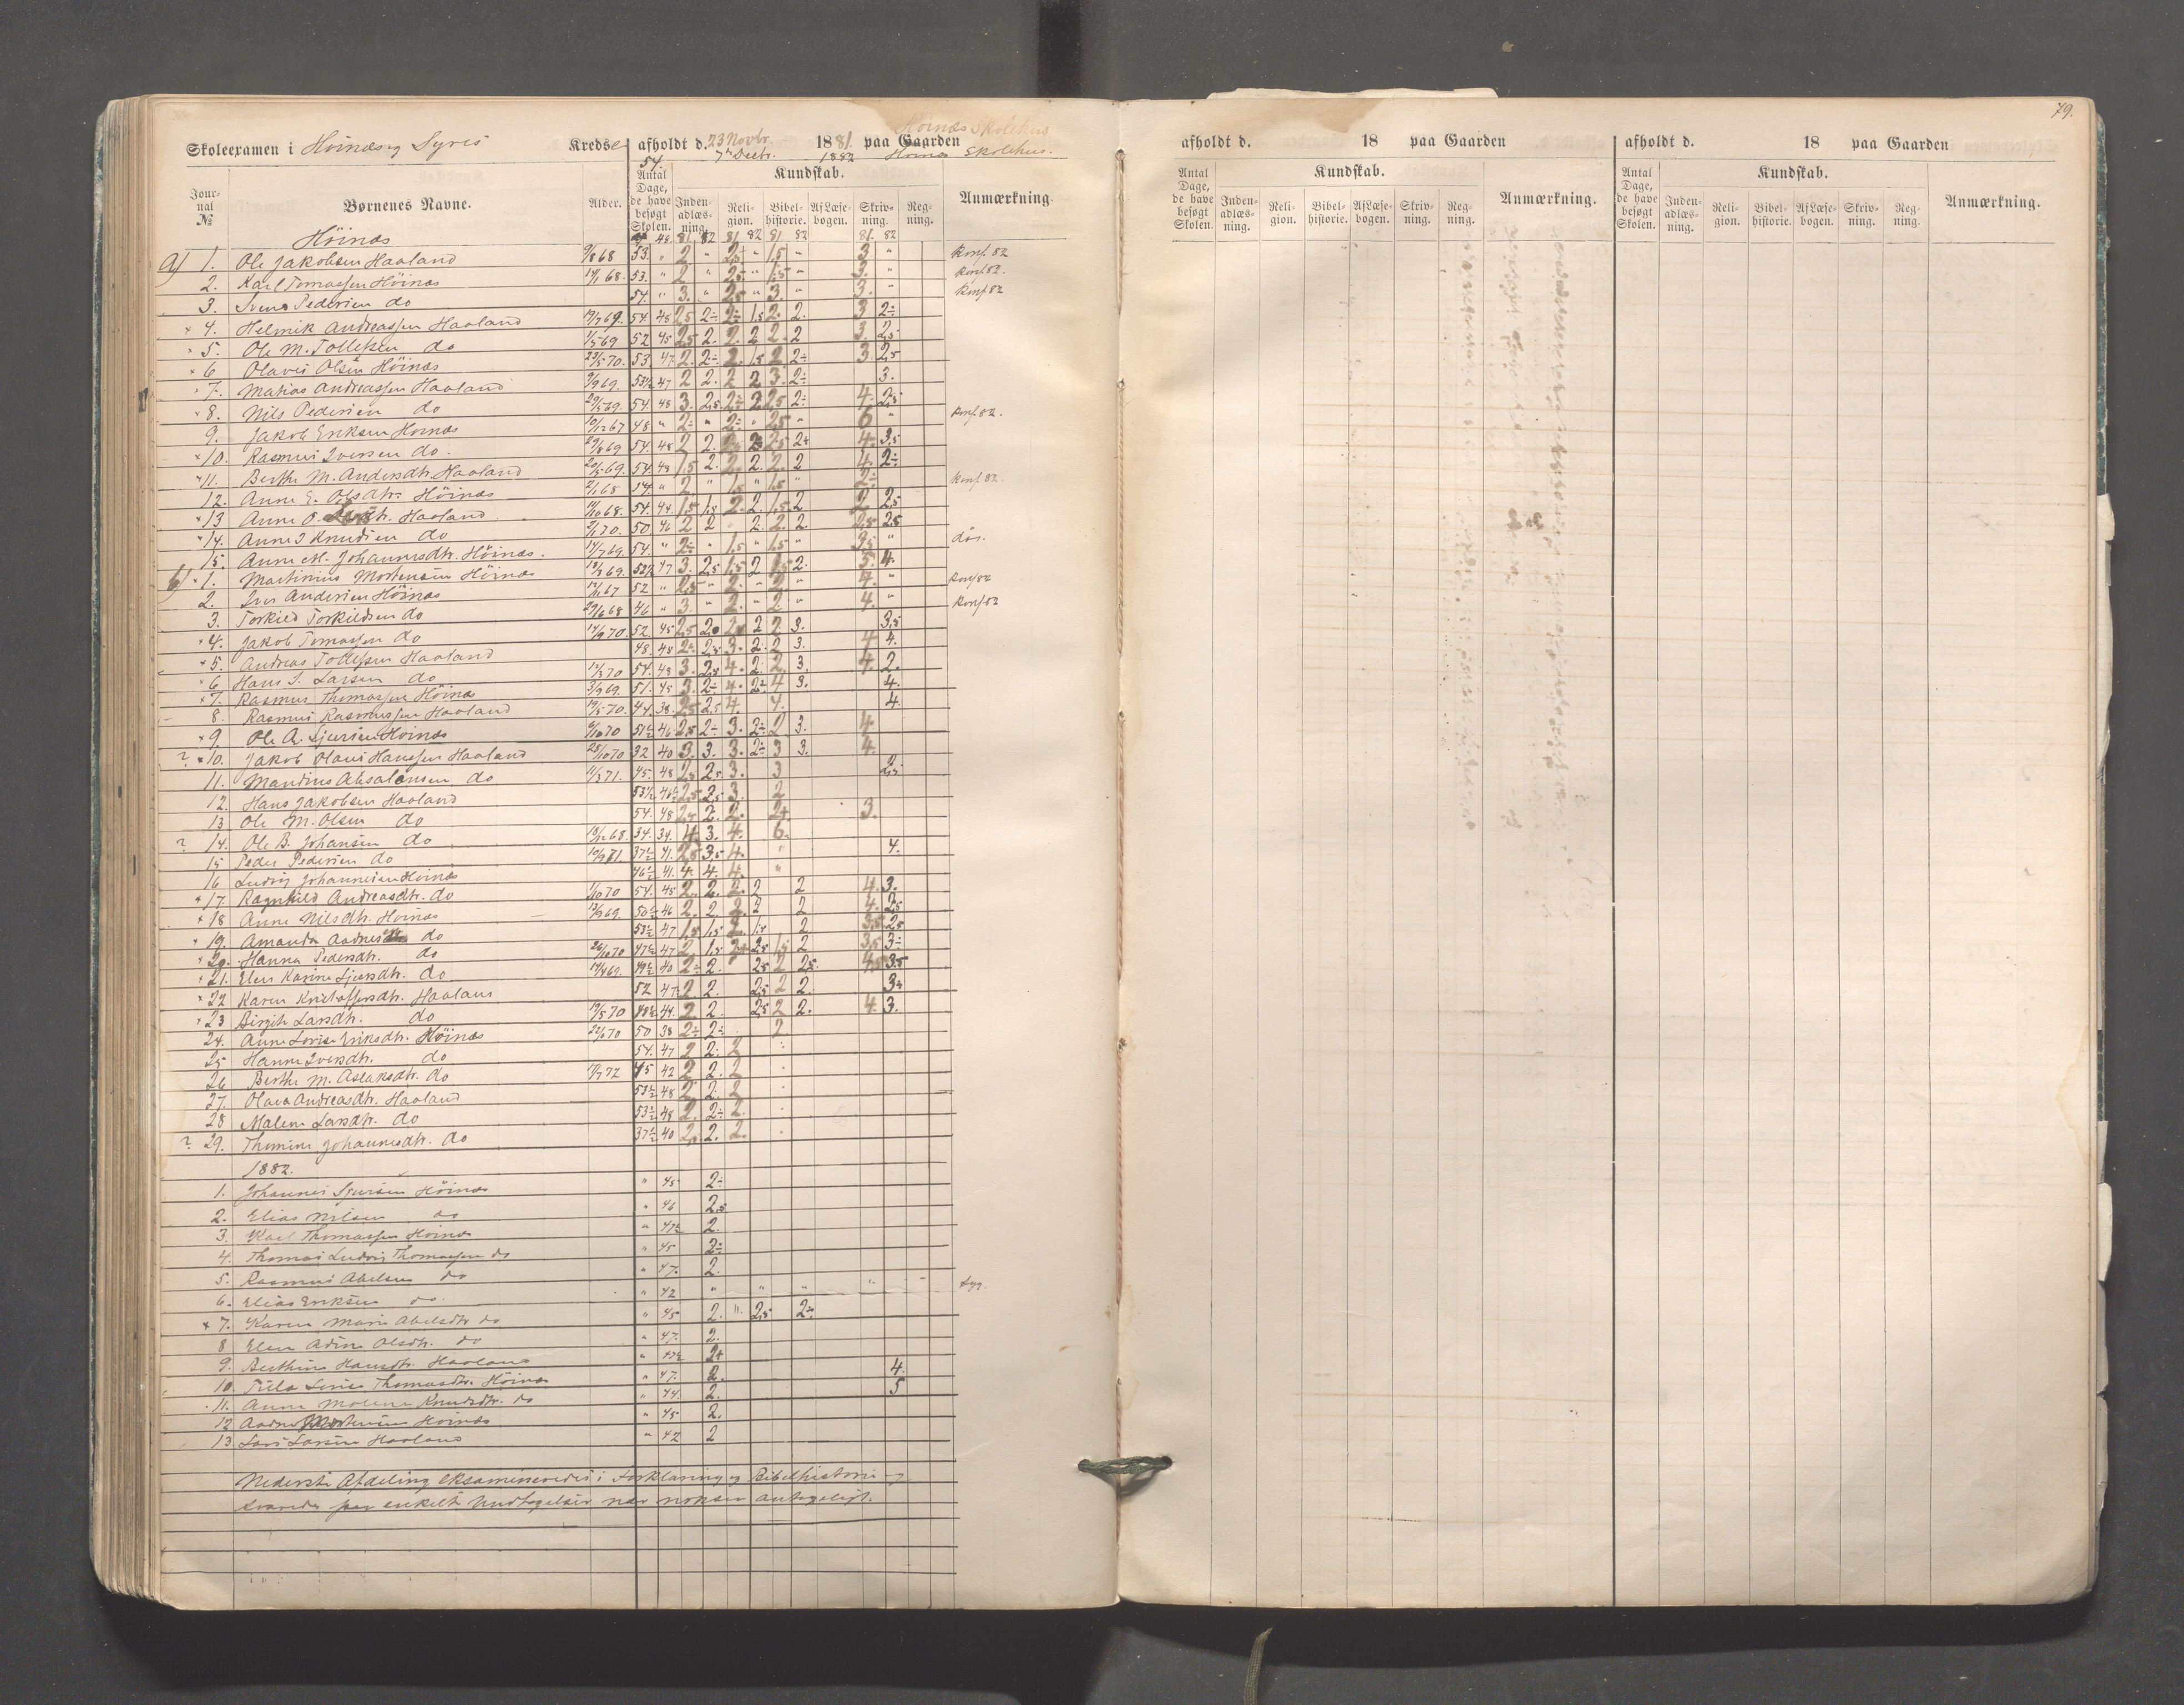 79.
Skoleexamen i Höinæs og Syres Kredse afholdt d. 23 Novbr. 1881. paa Gaarden Höinæs Skolehus
7de Decbr. 1882 Höinæs Skolehus.
54.
Jour-nal № Børnenes Navne. Alder. Antal Dage, de have besøgt Skolen. Kundskab. Anmærkning.
Inden-adlæs-ning. Reli-gion. Bibel-historie. AfLæse-bogen. Skriv-ning. Reg-ning.
48. 81 82 81 82 81 82 81. 82
Höinæs
a) 1. Ole Jakobsen Haaland 9/8 68 53. " 2 " " 1,5 " 3 " Konf. 82
2. Karl Tomassen Höinæs 68. 53. " 2 " 2,5 " 1,5 " 3. " Konf. 82.
3. Svend Pedersen do 54. " 3. " " 3. " 3. " Konf. 82
× 4. Helmik Andreassen Haaland 69. 54. 48 2,5 2÷ 2÷ 1,5 2. 2. 3 2÷
× 5. Ole M. Tollefsen do 1/5 69 52 45 2,5 2. 2. 2 2. 2 3. 2,5
× 6 Olaves Olsen Höinæs 23/5 70. 53. 47 2. 2÷ 2. 1,5 2 2÷ 3. 2,5
× 7. Matias Andreassen Haaland 9/9 69. 53½ 47 2 2. 2 2 3. 2÷ 3.
× 8. Nils Pedersen do 29/5 69. 54. 48 3. 2,5 2÷ 2 2,5 2÷ 4. 2,5
9. Jakob Eriksen Höinæs 10/12 67 48 " 2÷ " 2÷ " 2,5 " 6 " Konf. 82.
× 10. Rasmus Iversen do. 29/8 69 54. 48 2 2. 2,5 2+ 4. 3,5
× 11. Berthe M. Andersdtr. Haaland 20/5 69. 54. 48 1,5 2. 2. 2. 2. 2 4. 2÷
12. Anne E. Olsdtr. Höinæs 2/1 68 54. " 2. " 1,5 " 1,5 " 2÷ Konf. 82.
× 13 Anne O. Haaland 11/10 68. 54. 44 1,5 1,5 2. 2 1,5 2 2 2,5
× 14. Anne I Knudsen do 2/1 70. 50 46 2 2 2. 2. 2. 2,5 2,5
15. Anne M. Johannesdtr. Höinæs. 14/7 69. 54. " 2÷ " 1,5 " 1,5 " 3,5 " död.
b) × 1. Martinius Mortensen Höinæs 69. 52½ 47 3. 2,5 1,5 2 1,5 2. 5. 4.
2. Iver Andersen Höinæs 67 52 " 2,5 " 2. " 2 " 4. " Konf. 82
3. Torkild Torkildsen do 29/6 68 46 " 3. " 2. " 2. " 4. " Konf. 82
× 4. Jakob Tomassen do 70. 52. 45 2,5 2. 2 2 3. 3,5
× 5. Andreas Tollefsen Haaland 48. 48 2÷ 2,5 3. 2. 2 3. 4 4.
× 6 Hans S. Larsen do 12/3 70 54. 48 3. 2,5 4. 2. 2. 3. 4. 2.
× 7. Rasmus Thomassen Höinæs 3/9 69. 51. 45 3. 2÷ 4. 2÷ 4 3. 4.
8. Rasmus Rasmussen Haaland 19/5 70. 44. 38. 2,5 2,5 4. 4. 4
× 9. Ole A. Sjursen Höinæs 70 51½ 46 2,5 2÷ 3. 2÷ 2 3. 4
? × 10. Jakob Olaus Hanssen Haaland 28/10 70 32 40 3. 3. 3. 2÷ 3 3. 4.
11. Mandius Absalonsen do 11/3 71. 45. 48 2,5 2,5 3. 3 2,5
12. Hans Jakobsen Haaland 53½ 46½ 2,5 2,5 3. 2
13 Ole M. Olsen do 54. 48 2,5 2. 2. 2+ 3.
? 14. Ole B. Johansen do 18/12 68. 34. 34. 4. 3. 4. 6.
15 Peder Pedersen do 71. 37½ 41. 2,5 3,5 4. " 4.
16 Ludvig Johannessen Höinæs 46½ 41. 4. 4. 4. "
× 17. Ragnhild Andreasdtr. do 1/10 70 54. 45 2. 2. 2. 2 2 4. 3.
× 18 Anne Nilsdtr. Höinæs 69. 50½ 46 2. 2. 2. 2 2 4. 2,5
× 19. Amanda do 53½ 47 1,5 1,5 2. 1,5 2. 3,5 2,5
× 20. Hanna Pedersdtr. do 26/10 70 47½ 47 2 1,5 2+ 2,5 1,5 2 3,5 3÷
× 21. Elen Karine Sjursdtr. do 14/4 69. 49½ 40 2÷ 2. 2,5 2 2,5. 4,5 3,5
× 22 Karen Kristoffersdtr. Haaland 52 47 2. 2. 2,5 2 2. 3÷
× 23 Birgithe Larsdtr. do 19/5 70 48½ 44. 2. 2 2,5 2 2. 4. 3.
24. Anne Lovise Eriksdtr. Höinæs 22/6 70 50 38 2÷ 2÷ 2.
25 Hanne Iversdtr. do 54. 47 2 2. 2
26 Berthe M. Aslaksdtr. do 1/7 72 45 42 2 2. 2
27. Olava Andreasdtr. Haaland 53½ 48 2. 2. 2
28 Malene Larsdtr. do 53½ 48 2. 2÷ 2.
? 29. Thomine Johannesdtr. do 37½ 40 2. 2. 2.
1882.
1. Johannes Sjursen Höinæs " 45 2÷
2. Elias Nilsen do " 46 2,5.
3. Karl Thomassen Höinæs " 47½ 2.
4. Thomas Ludvig Thomassen do " 45 2÷
5. Rasmus Abelsen do " 47. 2.
6. Elias Eriksen do. " 42 " " " " syg.
× 7. Karen Marie Abelsdtr. do " 45 2. " 2,5 2÷
8 Elen Adine Olsdtr. do " 47. 2.
9. Berthine Hansdtr. Haaland " 47½ 2+
10. Thomasdtr. Höinæs " 47. 2. 4.
11. Anne Malene Knudsdtr. do " 44. 2. 5
12 Aadne Mortensen Höinæs " 45 2.
13 Lars Larsen Haaland " 42 2
Nederste Afdeling eksamineredes i Forklaring og Bibelhistorie og
svarede paa enkelte Undtagelser nær noksaa antageligt.
afholdt d. 18 paa Gaarden afholdt d. 18 paa Gaarden
Antal Dage, de have besøgt Skolen. Kundskab. Anmærkning. Antal Dage, de have besøgt Skolen. Kundskab. Anmærkning.
Inden-adlæs-ning. Reli-gion. Bibel-historie. AfLæse-bogen. Skriv-ning. Reg-ning. Inden-adlæs-ning. Reli-gion. Bibel-historie. AfLæse-bogen. Skriv-ning. Reg-ning.